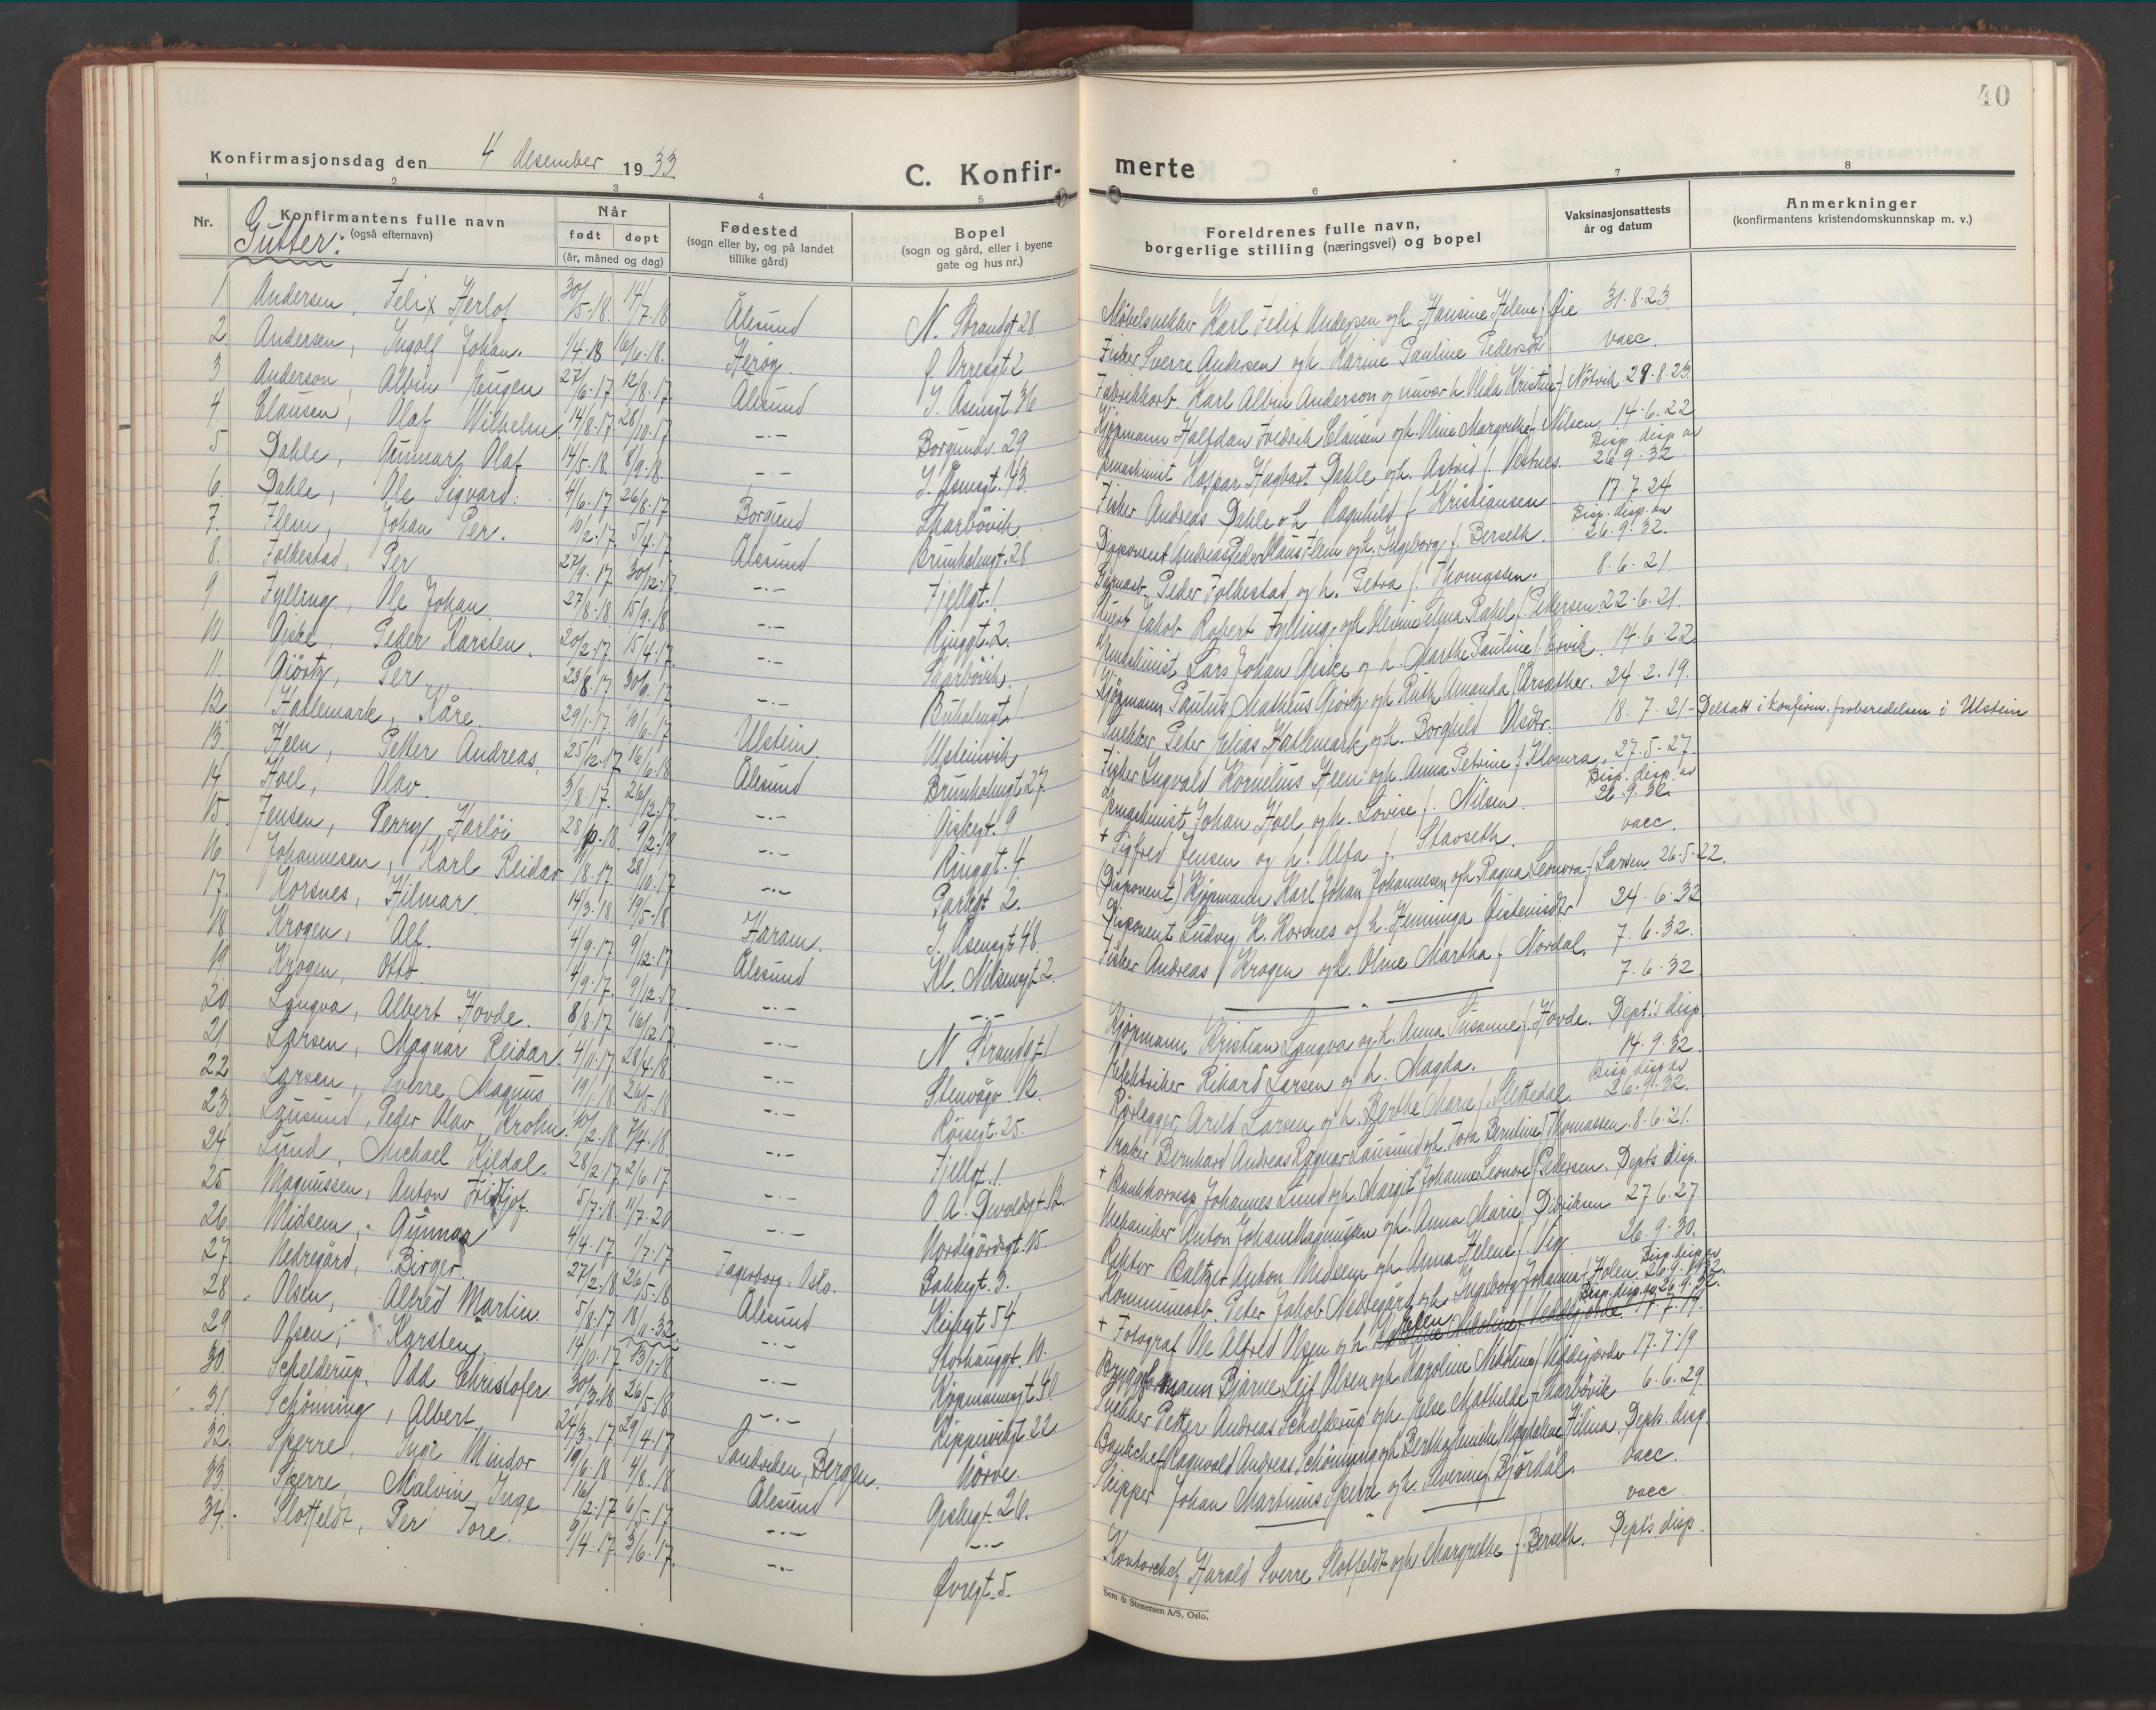 40
Konfirmasjonsdag den 4 desember 1933
C. Konfir- merte
1 2 3 4 5 6 7 8
Nr. Konfirmantens fulle navn (også efternavn) Når født døpt (år, måned og dag) Fødested (sogn eller by, og på landet tillike gård) Bopel (sogn og gård, eller i byene gate og hus nr.) Foreldrenes fulle navn, borgerlige stilling (næringsvei) og bopel Vaksinasjonsattests år og datum Anmerkninger (konfirmantens kristendomskunnskap m. v.)
Gutter:
1. Andersen, Felix Herlof 30/5-18. 14/7.18 Ålesund N. Strandgt 28 Møbelsnekker Karl Felix Andersen og h. Hansine Helene f. Øie 31.8.23
2. Andersen, Ingolf Johan. 1/4.18 16/6.18. Herøy. Ø. Orregt 2 Fisker Sverre Andersen og h. Karine Pauline Pedersen vacc.
3 Anderson, Albin Eugen 27/6.17 12/8.17. Ålesund I. Åsensgt 36 Fabrikkarb. Karl Albin Anderson og h. Olida Kristine f. Nötvik 28.8.23
4 Clausen, Olaf Wilhelm 14/8.17 28/10.17 -"- Borgundv. 29 Kjøpmann Halfdan Fredrik Clausen og h. Oline Margrethe f. Nilsen 14.6.22
5 Dahle, Olaf 14/5.18. 8/9.18. -"- I. Åsensgt. 43. Kaspar Hagbart Dahle og h. Astrid f. Vestnes. Bisp. disp av 26.9.32
6. Dahle, Ole Sigvard. 4/6.17 26/8.17 Borgund Skarbövik Fisker Andreas Dahle o h. Ragnhild f Kristiansen 17.7.24
7. Flem, Johan Per. 10/2.17. 5/4.17 Ålesund Brunholmgt. 28 Disponent Andreas Peder Klaus Flem og h. Ingeborg f. Berseth. Bisp. disp. av 26.9.32.
8. Folkestad, Per 27/9.17. 30/12.17. -"- Fjellgt. 1 Peder Folkestad og h. Petra f. Thomassen. 8.6.21.
9 Fylling, Ole Johan 27/8.18 15/9.18 -"- Ringgt. 2. Jakob Robert Fylling og h. Olevine Selma Rakel f. Pettersen 22.6.21.
10 Giske, Peder Karsten. 20/2.17. 15/4.17. -"- Skarbövik. Maskinist Lars Johan Giske og h. Marthe Pauline f. Ervik. 14.6.22
11. Giörtz, Per 23/8.17 30/9.17. -"- Buholmgt. 1 Kjöpmann Paulus Matheus Giörtz og h. Ruth Amanda f. Årsæther. 24.2.19.
12. Hatlemark, Kåre. 29/1.17 10/6.17 Ulstein. Ulsteinvik Snekker Peter Elias Hatlemark og h. Borghild Olsdtr. 18.7.21. - Deltatt i konfirm.forberedelsen i Ulstein
13. Heen, Petter Andreas, 25/12.17 16/6.18 Ålesund Brunholmgt 27. Fisker Ingvald Kornelius Heen og h. Anna Petrine f Klomra. 27.5.27.
14 Hoel, Olav. 3/8.17. 26/12.17. -"- Giskegt. 9 Maskinist Johan Hoel og h. Lovise f. Nilsen. Bisp. disp. av 26.9.32.
15. Jensen, Perry Harlöi 9/2.19 -"- Ringgt. 4. + Sigfred Jensen og h. Alfa f. Stavseth. vacc.
16 Johannesen, Karl Reidar 1/8.17. 28/10.17 -"- Parkgt 2. (Disponent) Kjøpmann Karl Johan Johannesen og h. Ragna Leonora f Larsen 26.5.22.
17. Korsnes, Hilmar. 14/3.18 19/5.18 Haram. I. Åsensgt 48. Disponent Ludvig K. Korsnes og h. Henninga Øisteinsdtr 24.6.32
18 Krogen, Alf. 4/9.17 9/12.17 Ålesund Kl. Nilsensgt 2. Fisker Andreas Krogen og h. Oline Martha f. Nordal. 7.6.32.
19 Krogen, Otto 4/9.17. 9/12.17. -"- -"- — " — 7.6.32
20. Longva, Albert Hovde. 8/8.17. 16/12.17. -"- N. Strandgt 1 Kjøpmann Kristian Longva og h. Anna Susanne f. Hovde. Dept.s disp.
21. Larsen, Magnar Reidar. 4/11.17 28/4.18 -"- Stenvågv. 12. Elektriker Rikard Larsen og h. Magda. 14.9.32
22 Larsen, Sverre Magnus. 19/1.18 26/5.18 -"- Röisegt. 25. Rørlegger Arild Larsen og h. Berthe Marie f. Slettedal. Bisp. disp av 26.9.32.
23. Lausund, Peder Olav Krohn. 10/2.18. 7/4.18 -"- Fjellgt. 1 Vraker Bernhard Andreas Ragnar Lausund og h. Tora Berntine f Thomassen. 8.6.21.
24 Lund, Michael Kildal. 28/2.17. 2/6.17. -"- O. A. Devoldsgt. 12. + Bankkorresp. Johannes Lund og h. Margit Johanne Leonore f Pedersen. Dept's disp.
25 Magnussen, Anton Fridtjof. 5/7.18 11/7.20 -"- Nordregårdsgt. 15. Mekaniker Anton Johan Magnussen og h. Anna Marie f Didriksen 27.6.27
26. Midsem, Gunnar 4/4.17. 1/7.17 Fagerborg. Oslo. Bakkegt. 3. Rektor Baltzer Anton Midsem og h. Anna Helene f. Vig. 26.9.30.
27. Nedregård, Birger. 27/2.18. 26/5.18 Ålesund Kirkegt 54 Kommunearb. Peter Jakob Nedregård og h. Ingeborg Johanna f Holen Bisp. disp av 26.9.32.
28. Olsen, Alfred Martin 5/8.17 18/11.32. -"- Storhauggt. 10. + Fotograf Ole Alfred Olsen og h. Bisp. disp. av 26.9.32.
29 Olsen, Karsten. 14/10.17. 13/1.18 -"- Kjøpmannsgt 40. Bryggemann Bjarne Leif Olsen og h. Karoline Nikoline f Veddegjerde 17.7.19
30. Schelderup, Odd Christofer 30/3.18 26/5.18 -"- Kippervikgt 22 Snekker Petter Andreas Schelderup og h. Else Mathilde f Skarbövik 6.6.29.
31. Schönning, Albert 24/3.17 29/4.17 Sandviken, Bergen. Nörve. Bankchef Ragnvald Andreas Schönning og h. Bertha Emilie Magdalene f Hilma. Dept's disp.
32. Sperre, Inge Mindor 19/6.18 4/8.18. Ålesund Giskegt. 26. Skipper Johan Martinus Sperre og h. Severine f. Bjørdal. vacc.
33. Sperre, Malvin Inge 16/2.17 6/5.17 -"- -"- — " — vacc.
34. Slotfeldt, Per Tore. 9/4.17 3/6.17. -"- Øvregt. 5. Kontorchef Harald Sverre Slotfeldt og h. Margrethe f. Berseth. Dept's disp.
Sem & Stenersen A/S, Oslo.